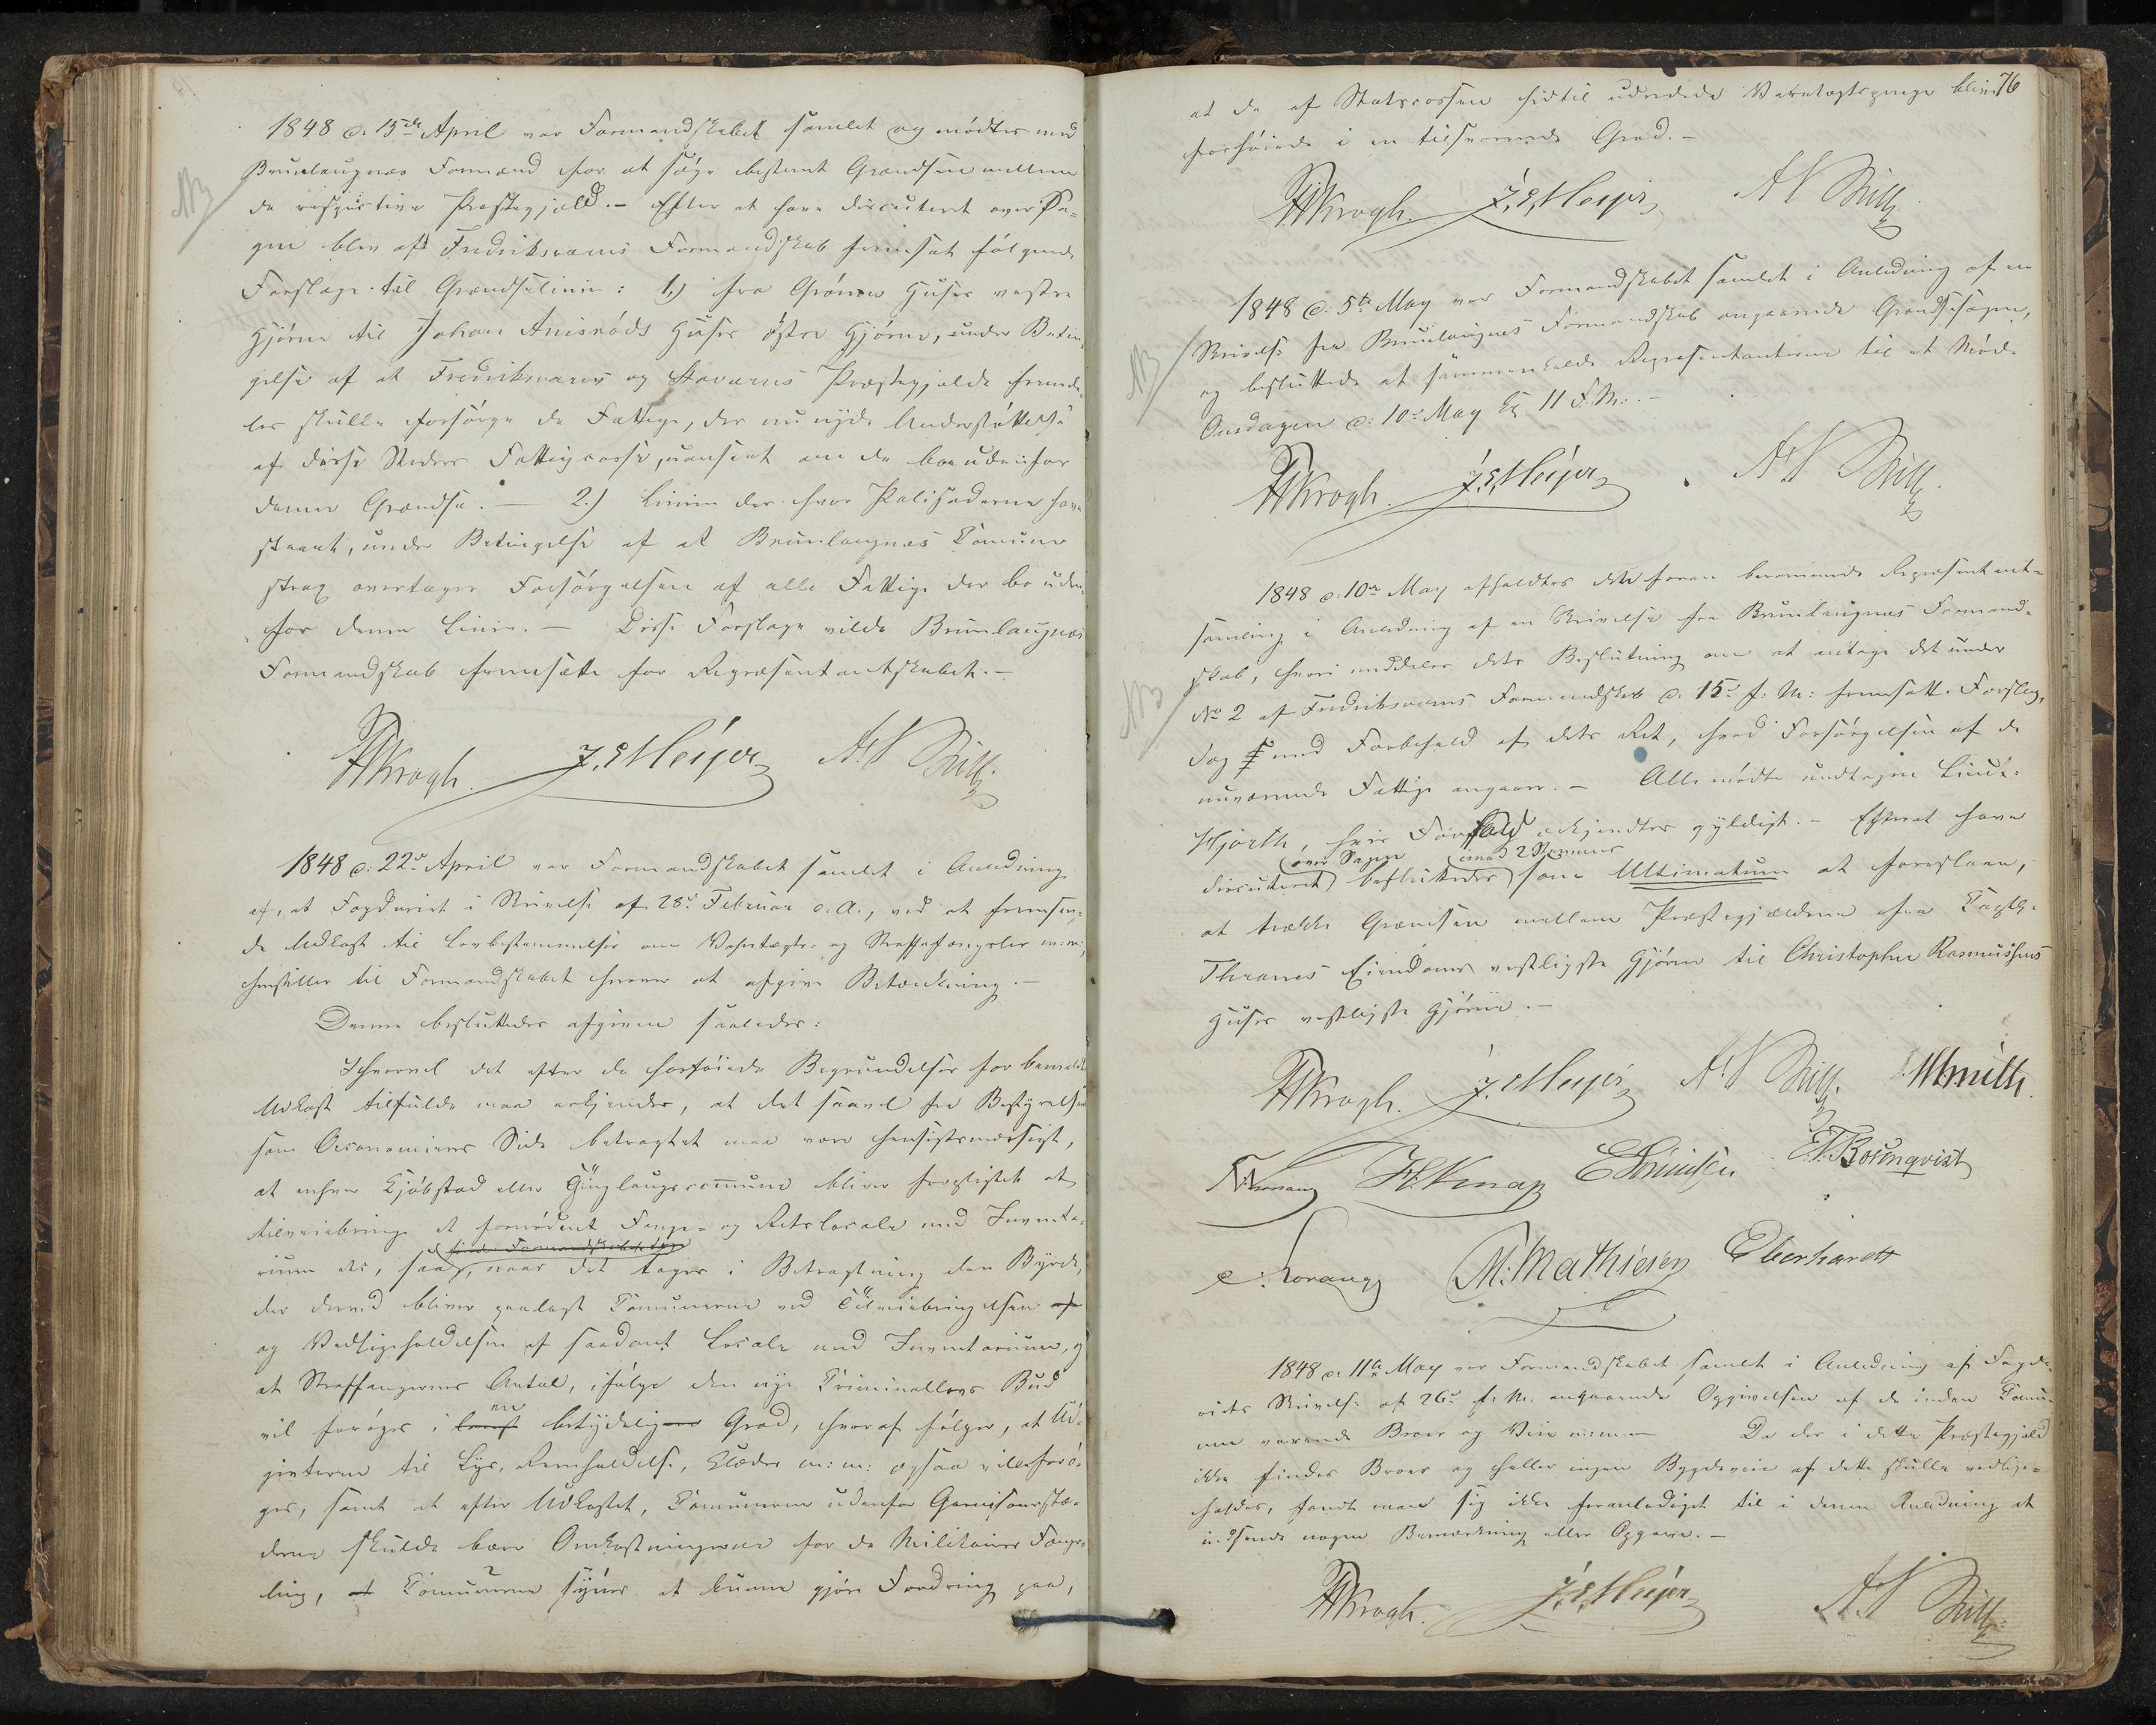 1848 d. 15de April var Formandskabet samlet og mødtes med
Brunlaugnæs Formænd for at søge bestemt Grændsen mellem
NB
de respective Præstegjæld. - Efter at have discuteret over Sa-
gen blev af Fredriksværns Formandskab fremsat følgende
Forslage til Grændselinie: 1,) fra Grønns Huses vestre
Hjørne til Johan Anisrøds Huses østre Hjørne, under Betin-
gelse af at Fredriksværns og Staværns Præstegjelde fremde-
les skulle forsørge de Fattige, der nu nyde Understøttelse
af disse Steders Fattigcasse, uanseet om de boe udenfor
denne Grændse. - 2.) Linien der hvor Palisaderne have
staaet, under Betingelse af at Brunlaugnæs Comune
strax overtager Forsørgelsen af alle Fattige der bo uden-
for denne Linie. - Disse Forslage vilde Brunlaugnæs
Formandskab fremsætte for Repræsentantskabet. -
Krogh. J. E. Meijer A S Bull
1848 d: 22de April var Formandskabet samlet i Anledning
af, at Fogderiet i Skrivelse af 28de Februar d. A., ved at fremsen-
de Udkast til Lovbestemmelser om Varetægts- og Straffefængsler m: m;
henstiller til Formandskabet herover at afgive Betænkning. -
Denne besluttedes afgiven saaledes:
Ihvorvel det efter de forføiede Begrundelser for bemeldte
Udkast tilfulde maa erkjendes, at det saavel fra Bestyrelsens
som Oeconomiens Side betragtet maa være hensigtsmæssigt,
at enhver Kjøbstad eller Thinglaugscomune bliver forpligtet at
tilveiebringe et fornødent Fange- og Retslocale med Inventa-
rium etc, saa finder Formandskabet dog, naar det tages i Betragtning den Byrde,
der derved bliver paalagt Comunerne ved Tilveiebringelsen af
og Vedligeholdelsen af saadant Locale med Inventarium, og
at Straffangernes Antal, ifølge den nye Criminallovs Bud
vil forøges i en betydelig Grad, hvoraf følger, at Ud-
givterne til Lys, Renholdelse, Klæder m: m: ogsaa ville forø-
ges, samt at efter Udkastet, Comunerne udenfor Garnisonsstæ-
derne skulde bære Omkostningerne for de Militaires Fængs-
ling, at Comunerne synes at kunne gjøre Fordring paa,
76
at de af Statscassen hidtil udredede Varetægtspenge blive
forhøiede i en tilsvarende Grad. -
Krogh. J. E. Meijer A S Bull
1848 d. 5te May var Formandskabet samlet i Anledning af en
NB
Skrivelse fra Brunlaugnæs Formandskab angaaende Grændsesagen,
og besluttede at sammenkalde Repræsentanterne til et Møde
Onsdagen d: 10de May Kl 11 F. M. -
Krogh. J. E. Meijer A S Bull
1848 d. 10de May afholdtes det foran berammede Repræsentant-
samling i Anledning af en Skrivelse fra Brunlaugnæs Formand-
skab, hvori meddeles dets Beslutning om at antage det under
NB
No 2 af Fredriksværns Formandskab d. 15de f. M: fremsatte Forslag,
dog med Forbehold af dets Ret, hvad Forsørgelsen af de
nuværende Fattige angaaer. - Alle mødte undtagen Lieut:
Hjorth, hvis Forfald erkjendtes gyldigt. - Efterat have
over Sagen imod 2 Stemmer
discuteret besluttedes som Ultimatum at foreslaae,
at trække Grændsen mellem Præstegjældene fra Captl.
Thranes Eiendoms vestligste Hjørne til Christopher Rasmussens
Huses vestligste Hjørne. -
Krogh. J. E. Meijer A S Bull. Smith.
H. Knap E Arnudsen Rosenqvist
M: Mathiesen Eberhardt
1848 d. 11te May var Formandskabet samlet i Anledning af Fogde-
riets Skrivelse af 26de f. M. angaaende Opgivelsen af de inden Comu-
nen værende Broer og Veie m: m - Da der i dette Præstegjæld
ikke findes Broer og heller ingen Bygdeveie af dette skulle vedlige-
holdes, fandt man sig ikke foranlediget til i denne Anledning at
indsende nogen Bemærkning eller Opgave. -
Krogh. J. E. Meijer A S Bull